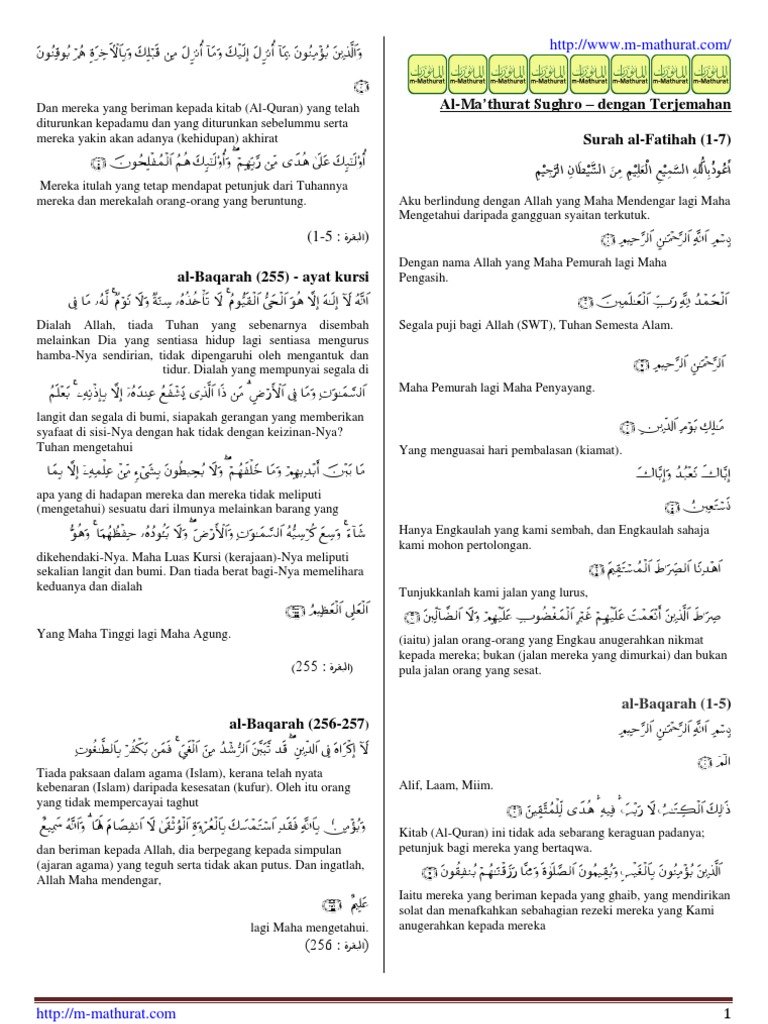 http://www.m-mathurat.com/
Al-Ma’thurat Sughro – dengan Terjemahan
Surah al-Fatihah (1-7)
أَعُوذُ بِاللَّهِ السَّمِيْعِ الْعَلِيْمِ مِنَ الشَّيْطَانِ الرَّجِيْمِ
Aku berlindung dengan Allah yang Maha Mendengar lagi Maha
Mengetahui daripada gangguan syaitan terkutuk.
بِسْمِ ٱللَّهِ ٱلرَّحْمَـٰنِ ٱلرَّحِيمِ ﴿١﴾
Dengan nama Allah yang Maha Pemurah lagi Maha
Pengasih.
ٱلْحَمْدُ لِلَّهِ رَبِّ ٱلْعَـٰلَمِينَ ﴿٢﴾
Segala puji bagi Allah (SWT), Tuhan Semesta Alam.
ٱلرَّحْمَـٰنِ ٱلرَّحِيمِ ﴿٣﴾
Maha Pemurah lagi Maha Penyayang.
مَـٰلِكِ يَوْمِ ٱلدِّينِ ﴿٤﴾
Yang menguasai hari pembalasan (kiamat).
إِيَّاكَ نَعْبُدُ وَإِيَّاكَ
نَسْتَعِينُ ﴿٥﴾
Hanya Engkaulah yang kami sembah, dan Engkaulah sahaja
kami mohon pertolongan.
ٱهْدِنَا ٱلصِّرَٰطَ ٱلْمُسْتَقِيمَ ﴿٦﴾
Tunjukkanlah kami jalan yang lurus,
صِرَٰطَ ٱلَّذِينَ أَنْعَمْتَ عَلَيْهِمْ غَيْرِ ٱلْمَغْضُوبِ عَلَيْهِمْ وَلَا ٱلضَّآلِّينَ ﴿٧﴾
(iaitu) jalan orang-orang yang Engkau anugerahkan nikmat
kepada mereka; bukan (jalan mereka yang dimurkai) dan bukan
pula jalan orang yang sesat.
al-Baqarah (1-5)
بِسْمِ ٱللَّهِ ٱلرَّحْمَـٰنِ ٱلرَّحِيمِ
الٓمٓ ﴿١﴾
Alif, Laam, Miim.
ذَٰلِكَ ٱلْكِتَـٰبُ لَا رَيْبَ ۛ فِيهِ ۛ هُدًى لِّلْمُتَّقِينَ ﴿٢﴾
Kitab (Al-Quran) ini tidak ada sebarang keraguan padanya;
petunjuk bagi mereka yang bertaqwa.
ٱلَّذِينَ يُؤْمِنُونَ بِٱلْغَيْبِ وَيُقِيمُونَ ٱلصَّلَوٰةَ وَمِمَّا رَزَقْنَـٰهُمْ يُنفِقُونَ ﴿٣﴾
Iaitu mereka yang beriman kepada yang ghaib, yang mendirikan
solat dan menafkahkan sebahagian rezeki mereka yang Kami
anugerahkan kepada mereka
وَٱلَّذِينَ يُؤْمِنُونَ بِمَآ أُنزِلَ إِلَيْكَ وَمَآ أُنزِلَ مِن قَبْلِكَ وَبِٱلْـَٔاخِرَةِ هُمْ يُوقِنُونَ
﴿٤﴾
Dan mereka yang beriman kepada kitab (Al-Quran) yang telah
diturunkan kepadamu dan yang diturunkan sebelummu serta
mereka yakin akan adanya (kehidupan) akhirat
أُو۟لَـٰٓئِكَ عَلَىٰ هُدًى مِّن رَّبِّهِمْ ۖ وَأُو۟لَـٰٓئِكَ هُمُ ٱلْمُفْلِحُونَ ﴿٥﴾
Mereka itulah yang tetap mendapat petunjuk dari Tuhannya
mereka dan merekalah orang-orang yang beruntung.
(البقرة : 1-5)
al-Baqarah (255) - ayat kursi
ٱللَّهُ لَآ إِلَـٰهَ إِلَّا هُوَ ٱلْحَىُّ ٱلْقَيُّومُ ۚ لَا تَأْخُذُهُۥ سِنَةٌ وَلَا نَوْمٌ ۚ لَّهُۥ مَا فِى
Dialah Allah, tiada Tuhan yang sebenarnya disembah
melainkan Dia yang sentiasa hidup lagi sentiasa mengurus
hamba-Nya sendirian, tidak dipengaruhi oleh mengantuk dan
tidur. Dialah yang mempunyai segala di
ٱلسَّمَـٰوَٰتِ وَمَا فِى ٱلْأَرْضِ ۗ مَن ذَا ٱلَّذِى يَشْفَعُ عِندَهُۥٓ إِلَّا بِإِذْنِهِۦ ۚ يَعْلَمُ
langit dan segala di bumi, siapakah gerangan yang memberikan
syafaat di sisi-Nya dengan hak tidak dengan keizinan-Nya?
Tuhan mengetahui
مَا بَيْنَ أَيْدِيهِمْ وَمَا خَلْفَهُمْ ۖ وَلَا يُحِيطُونَ بِشَىْءٍ مِّنْ عِلْمِهِۦٓ إِلَّا بِمَا
apa yang di hadapan mereka dan mereka tidak meliputi
(mengetahui) sesuatu dari ilmunya melainkan barang yang
شَآءَ ۚ وَسِعَ كُرْسِيُّهُ ٱلسَّمَـٰوَٰتِ وَٱلْأَرْضَ ۖ وَلَا يَـُٔودُهُۥ حِفْظُهُمَا ۚ وَهُوَ
dikehendaki-Nya. Maha Luas Kursi (kerajaan)-Nya meliputi
sekalian langit dan bumi. Dan tiada berat bagi-Nya memelihara
keduanya dan dialah
ٱلْعَلِىُّ ٱلْعَظِيمُ ﴿٢٥٥﴾
Yang Maha Tinggi lagi Maha Agung.
(البقرة : 255)
al-Baqarah (256-257)
لَآ إِكْرَاهَ فِى ٱلدِّينِ ۖ قَد تَّبَيَّنَ ٱلرُّشْدُ مِنَ ٱلْغَىِّ ۚ فَمَن يَكْفُرْ بِٱلطَّـٰغُوتِ
Tiada paksaan dalam agama (Islam), kerana telah nyata
kebenaran (Islam) daripada kesesatan (kufur). Oleh itu orang
yang tidak mempercayai taghut
وَيُؤْمِنۢ بِٱللَّهِ فَقَدِ ٱسْتَمْسَكَ بِٱلْعُرْوَةِ ٱلْوُثْقَىٰ لَا ٱنفِصَامَ لَهَا ۗ وَٱللَّهُ سَمِيعٌ
dan beriman kepada Allah, dia berpegang kepada simpulan
(ajaran agama) yang teguh serta tidak akan putus. Dan ingatlah,
Allah Maha mendengar,
عَلِيمٌ ﴿٢٥٦﴾
lagi Maha mengetahui.
(البقرة : 256)
http://m-mathurat.com
1